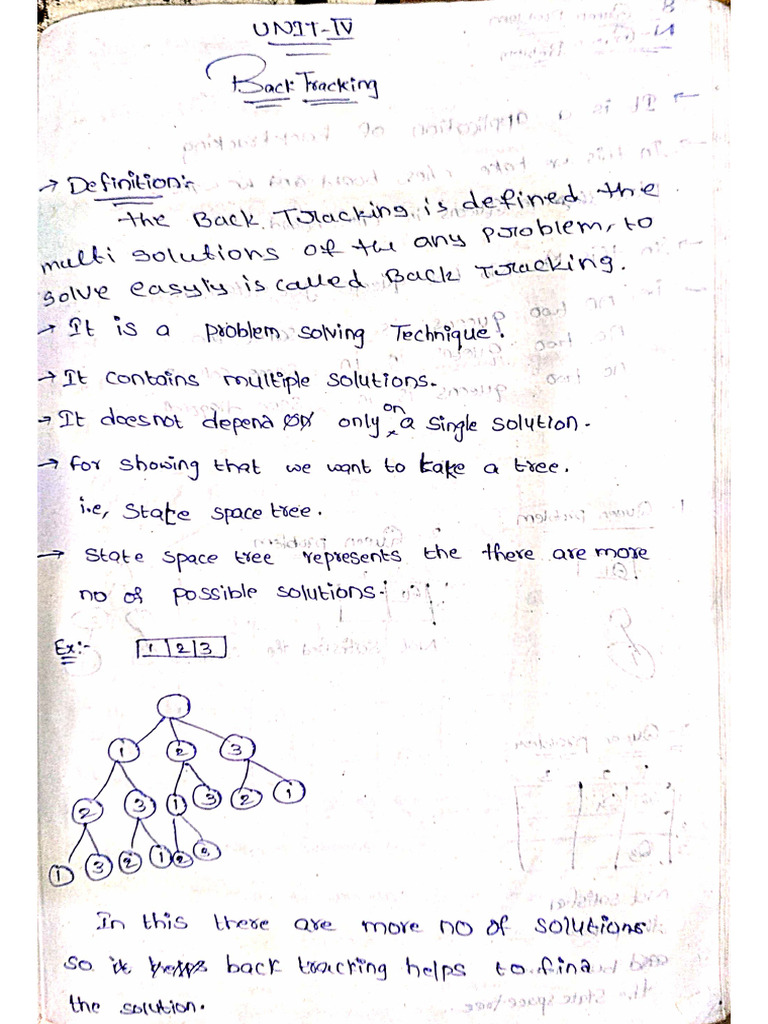 UNIT-IV
Back Tracking
→ Definition:-
the Back Tracking is defined the
multi solutions of the any problem, to
solve easyly is called Back Tracking.
→ It is a problem solving Technique.
→ It contains multiple solutions.
→ It doesnot depend only on a single solution.
→ for showing that we want to take a tree.
i.e, State space tree.
→ State space tree represents the there are more
no of possible solutions.
Ex:- 1 2 3
1 2 3
2 3 1 3 2 1
1 3 2 1 2
In this there are more no of solutions
so back tracking helps to find
the solution.